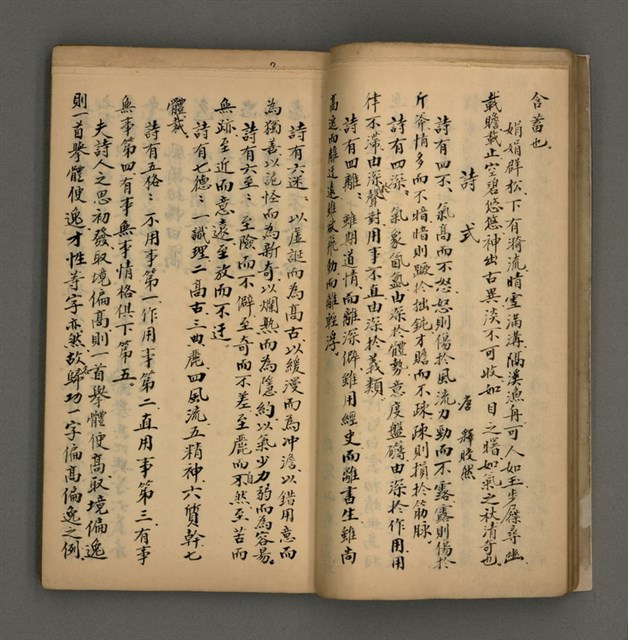 含蓄也
娟娟群松下有漪流晴雪滿溝隔溪漁舟可人如玉步屧尋幽
載瞻載止空碧悠悠神出古異淡不可收如月之曙如氣之秋清奇也
詩式
唐 釋皎然
詩有四不氣高而不怒怒則傷於風流力勁而不露露則傷於
斤斧情多而不暗暗則蹶於拙鈍才贍而不疎疎則損於筋脉
詩有四深氣象氤氳由深於體勢意度盤礴由深於作用用
律不滯由深於聲對用事不直由深於義類
詩有四離雖期道情而離深僻雖用經史而離書生雖尚
高逸而離迂遠雖欲飛動而離輕浮
詩有六迷以虛誕而為高古以緩漫而為冲澹以錯用意而
為獨善以詭怪而為新奇以爛熟而為隱約以氣少力弱而為容易
詩有六至至險而不僻至奇而不差至麗而自然至苦而
無跡至近而意遠至放而不迂
詩有七德一識理二高古三典麗四風流五精神六質幹七
體裁
詩有五格不用事第一作用事第二直用事第三有事
無事第四有事無事情格俱下第五
夫詩人之思初發取境偏高則一首舉體便高取境偏逸
則一首舉體便逸才性等字亦然故歸功一字偏高偏逸之例